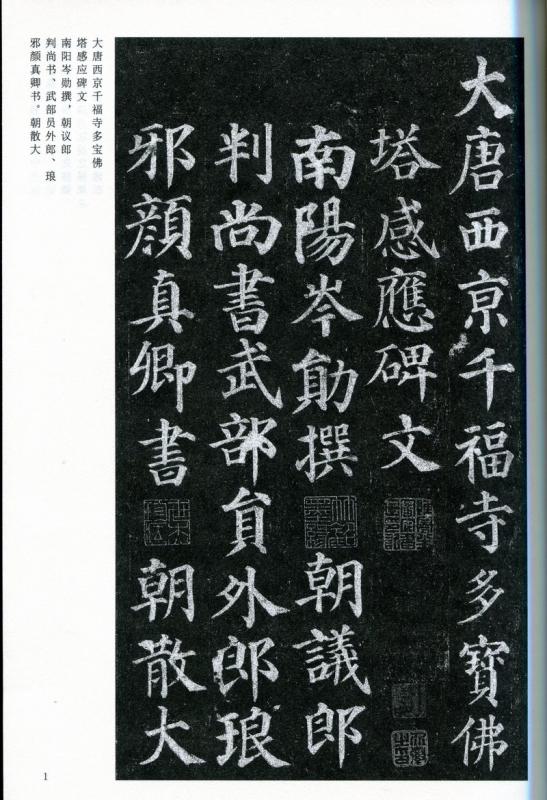 大唐西亰千福寺多寶佛
塔感應碑文
南陽岑勛撰 朝議郎
判尚書武部貟外郎琅
邪顔真卿書 朝散大
大唐西京千福寺多宝佛
塔感应碑文
南阳岑勋撰，朝议郎
判尚书、武部员外郎、琅
邪颜真卿书。朝散大
1